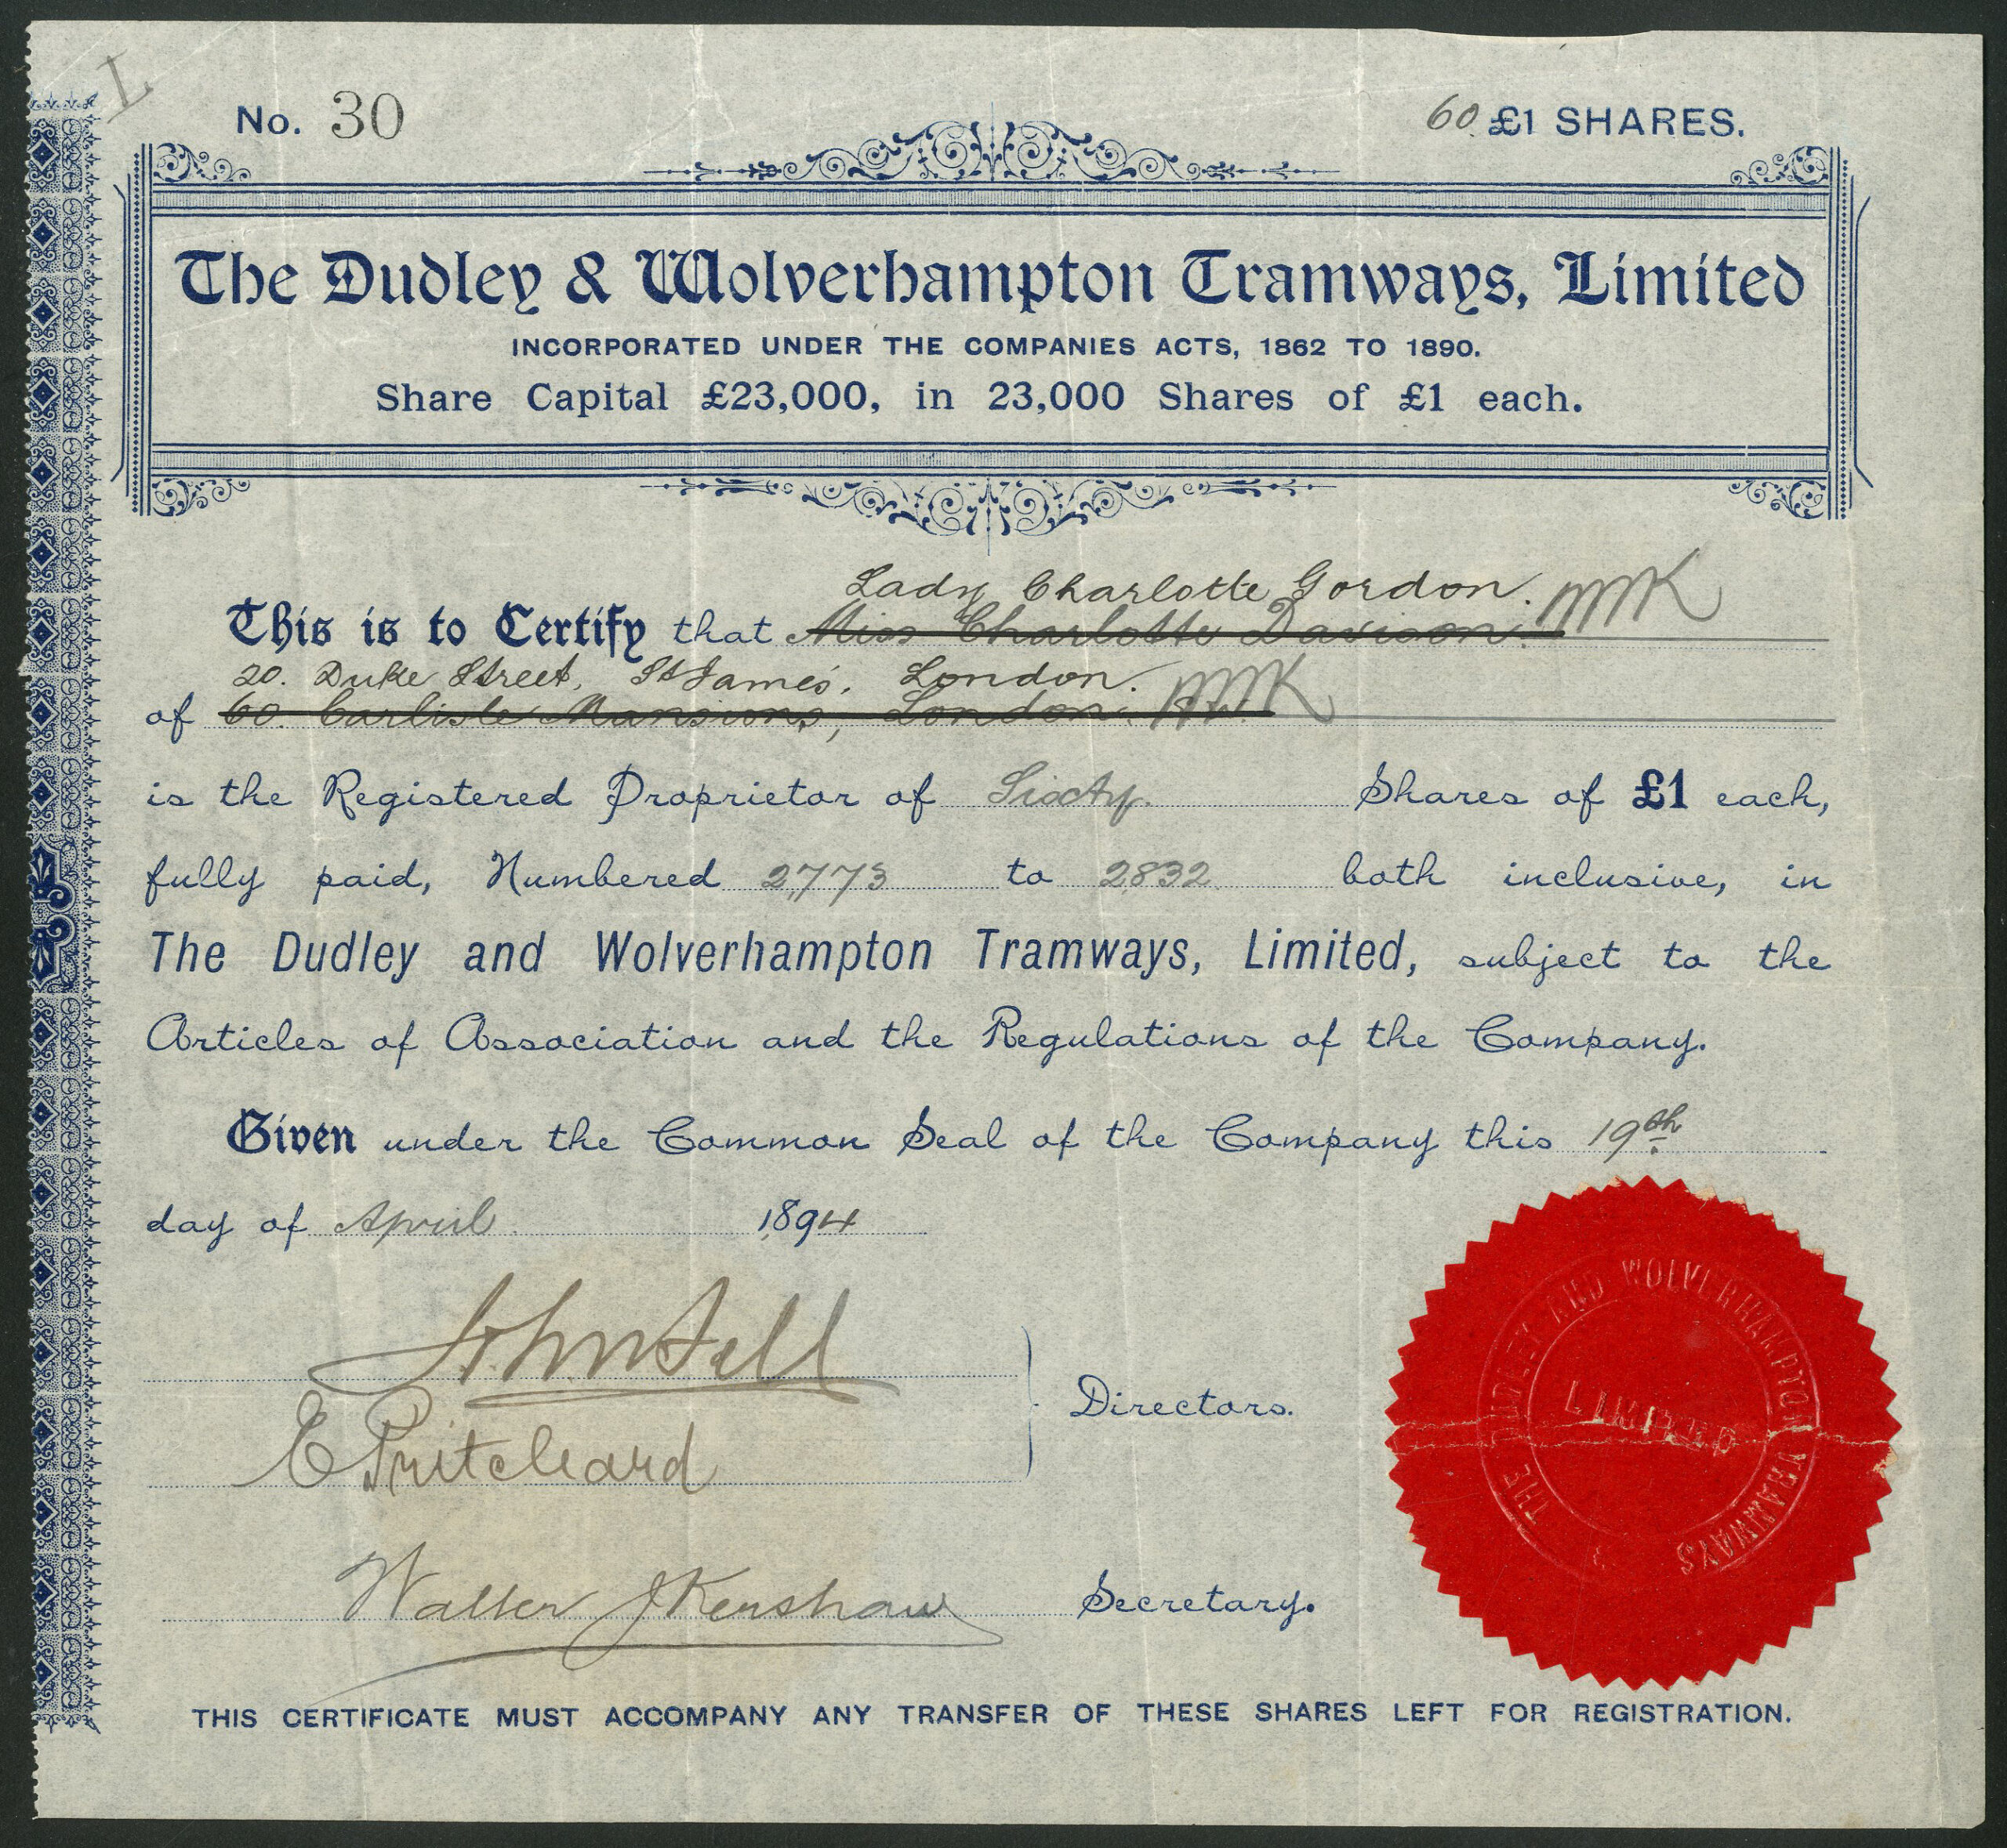 No. 30
60 £1 SHARES.
The Dudley & Wolverhampton Tramways, Limited
INCORPORATED UNDER THE COMPANIES ACTS, 1862 TO 1890.
Share Capital £23,000, in 23,000 Shares of £1 each.
Lady Charlotte Gordon.
This is to Certify that Miss Charlotte Davison.
20. Duke Street, St James'. London.
of 60. Carlisle Mansions, London.
is the Registered Proprietor of Sixty Shares of £1 each,
fully paid, Numbered 2773 to 2832 both inclusive, in
The Dudley and Wolverhampton Tramways, Limited, subject to the
Articles of Association and the Regulations of the Company.
Given under the Common Seal of the Company this 19th
day of April 1894
John Fell
E Pritchard
Directors.
Walter J Kershaw
Secretary.
THE DUDLEY AND WOLVERHAMPTON TRAMWAYS
LIMITED
THIS CERTIFICATE MUST ACCOMPANY ANY TRANSFER OF THESE SHARES LEFT FOR REGISTRATION.